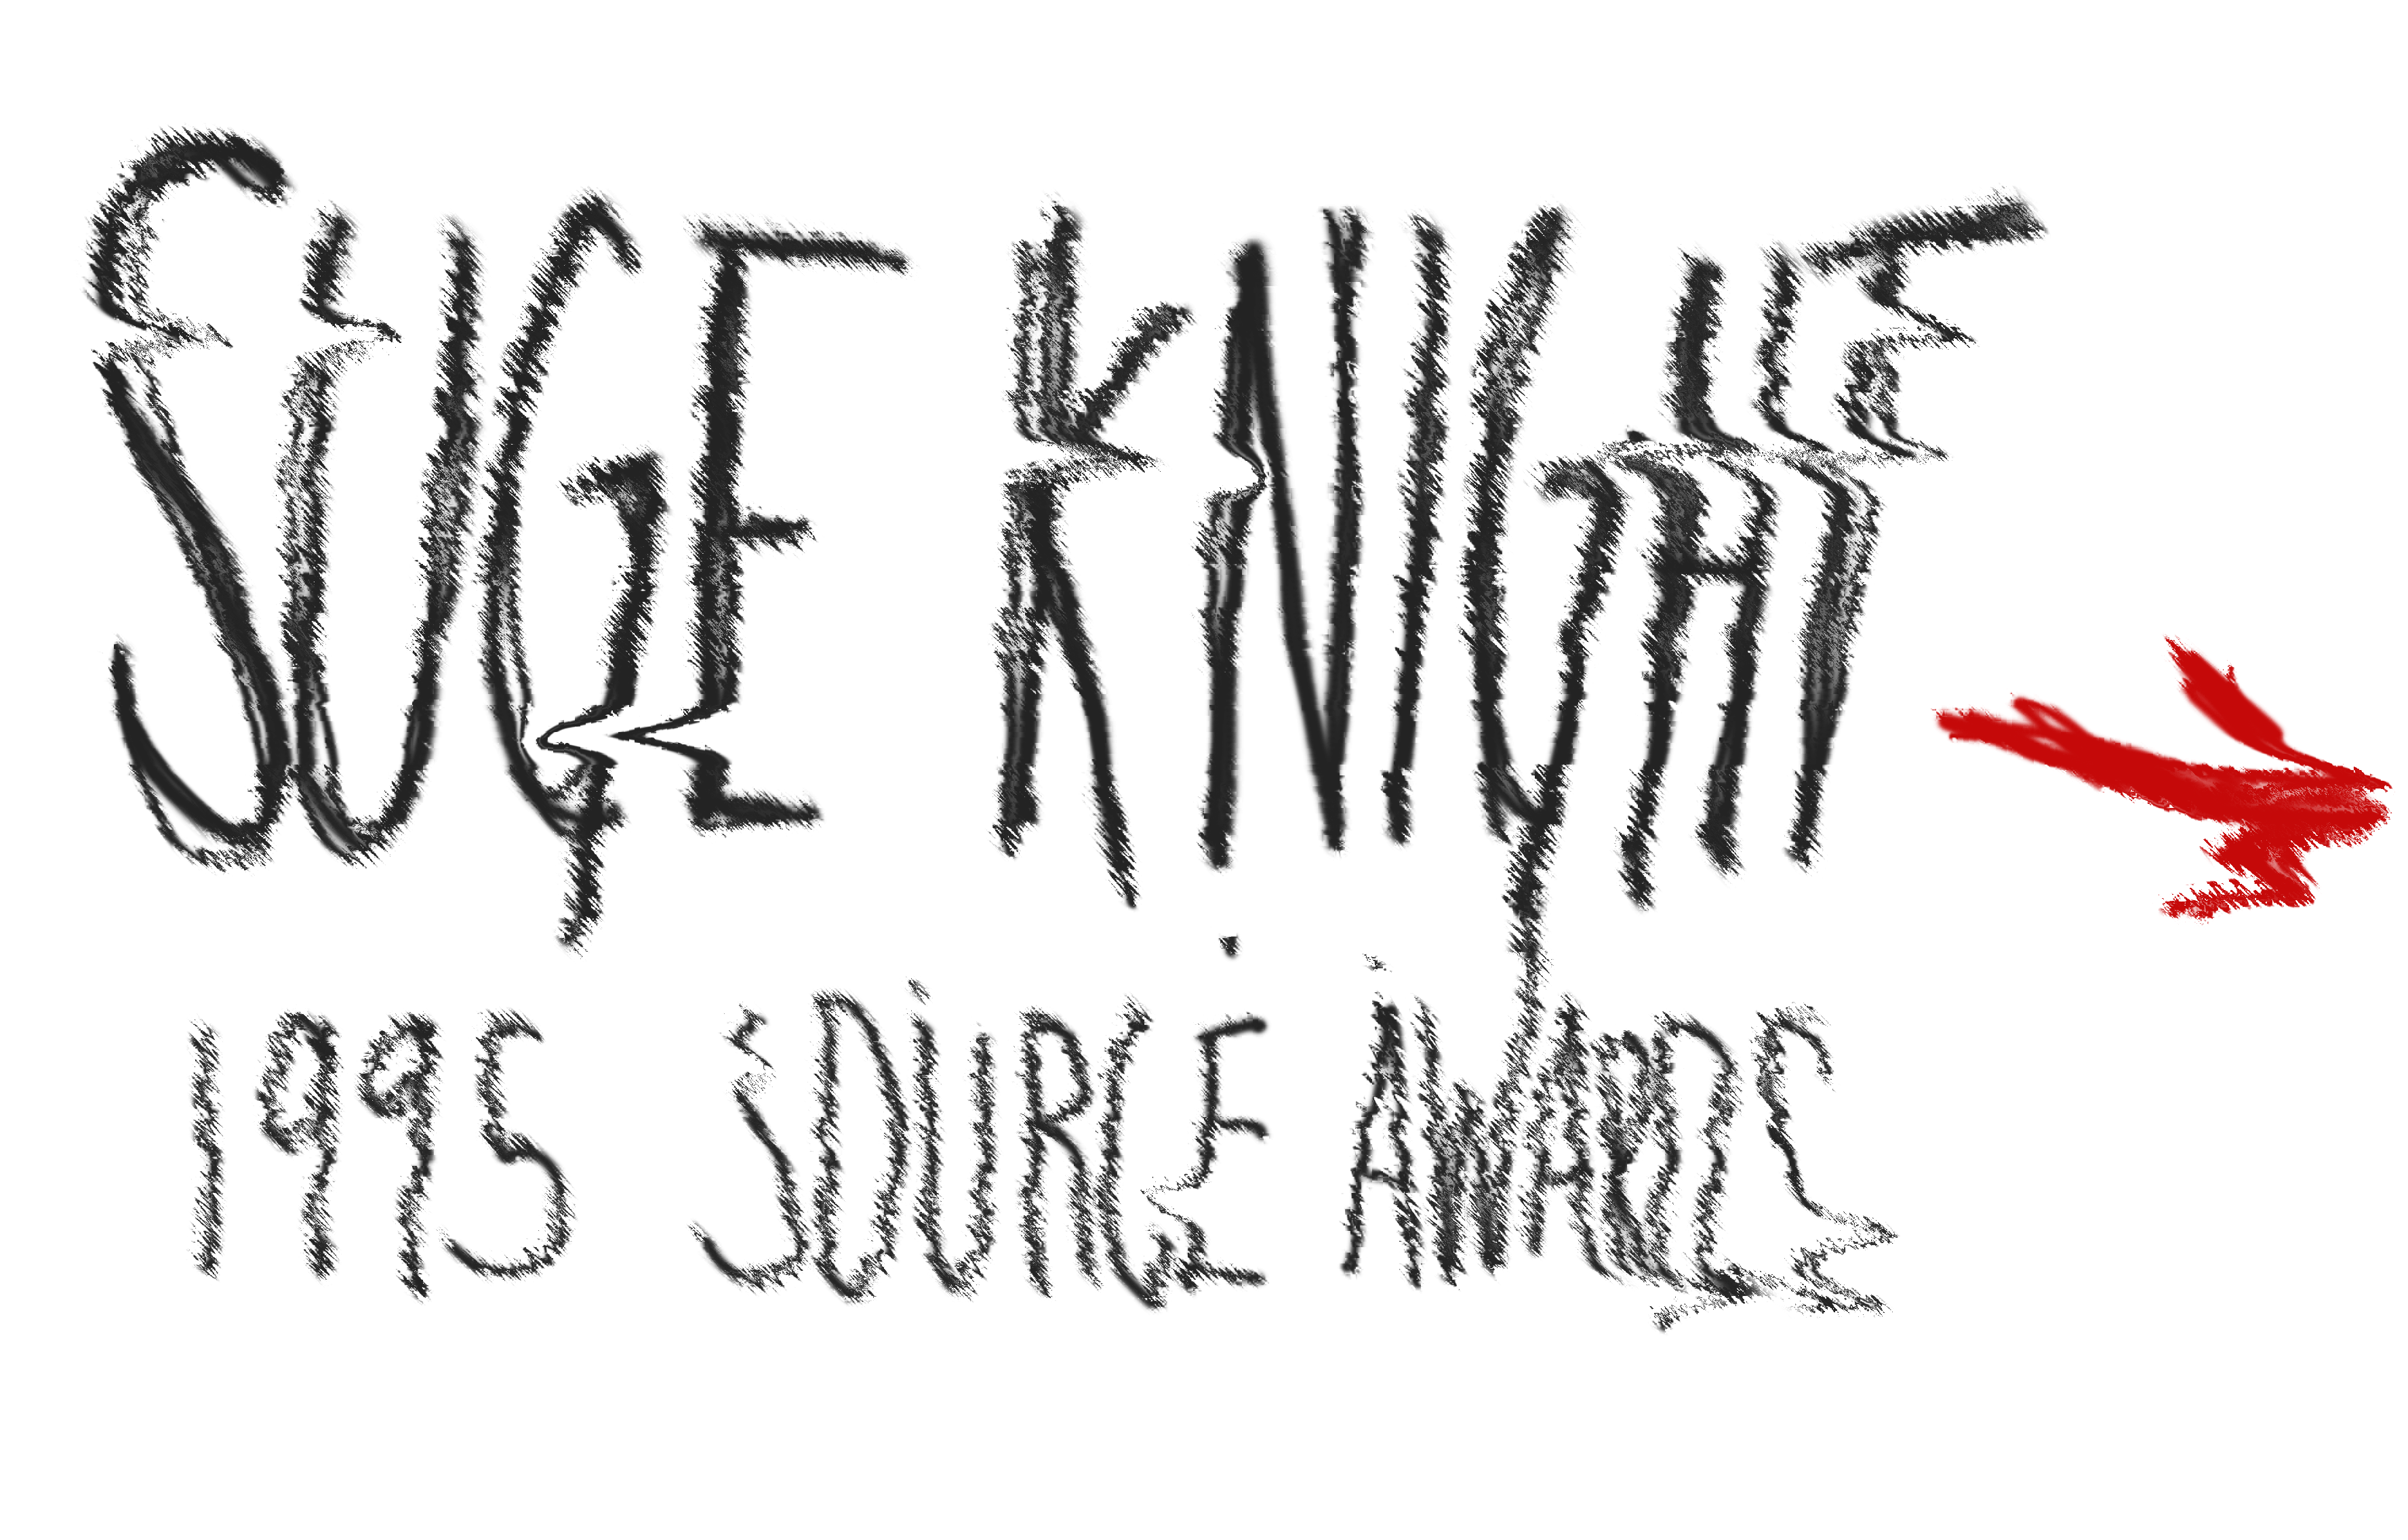 SUGE KNIGHT
1995 SOURCE AWARDS